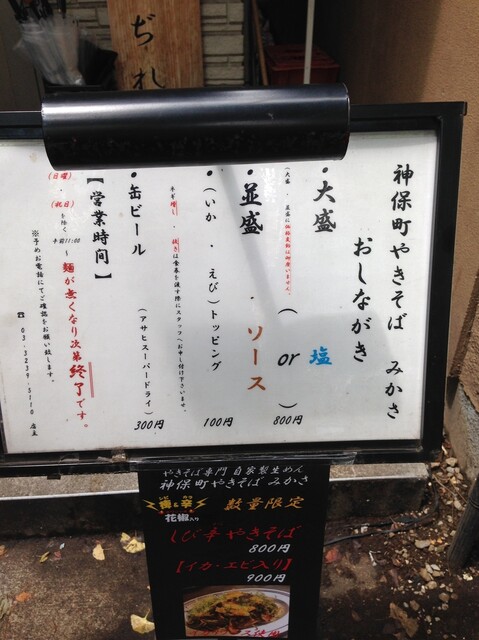 ぢれ
神保町やきそば みかさ
おしながき
・大盛
（大盛・並盛に価格変動は御座いません。）
・並盛
（塩 or ソース） 800円
・（いか・えび）トッピング 100円
ネギ増し・抜きは食券を渡す際にスタッフへお申し付け下さいませ。
・缶ビール （アサヒスーパードライ） 300円
【営業時間】
（日曜）・（祝日）を除く 午前11:00 〜 麺が無くなり次第終了です。
※予めお電話にてご確認をお願い致します。
☎ 03-3239-5110 店主
やきそば専門 自家製生めん
神保町やきそば みかさ
痺&辛
花椒入り
数量限定
しび辛やきそば
800円
【イカ・エビ入り】
900円